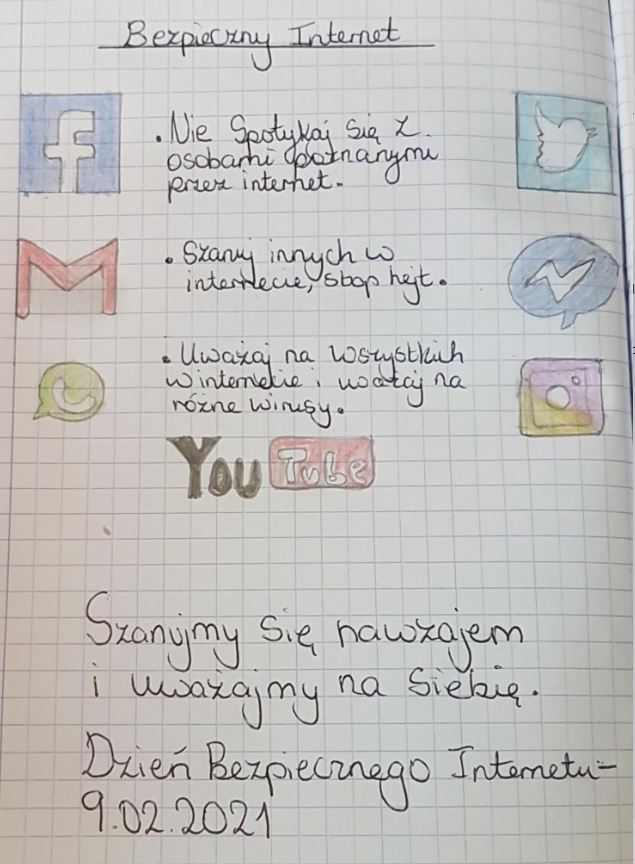 Bezpieczny Internet
. Nie Spotykaj się z.
osobami poznanymi
przez internet.
. Szanuj innych w
internecie, stop hejt.
. Uważaj na wszystkich
w internecie i uważaj na
różne wirusy.
You Tube
Szanujmy się nawzajem
i uważajmy na siebię.
Dzień Bezpiecznego Internetu-
9.02.2021